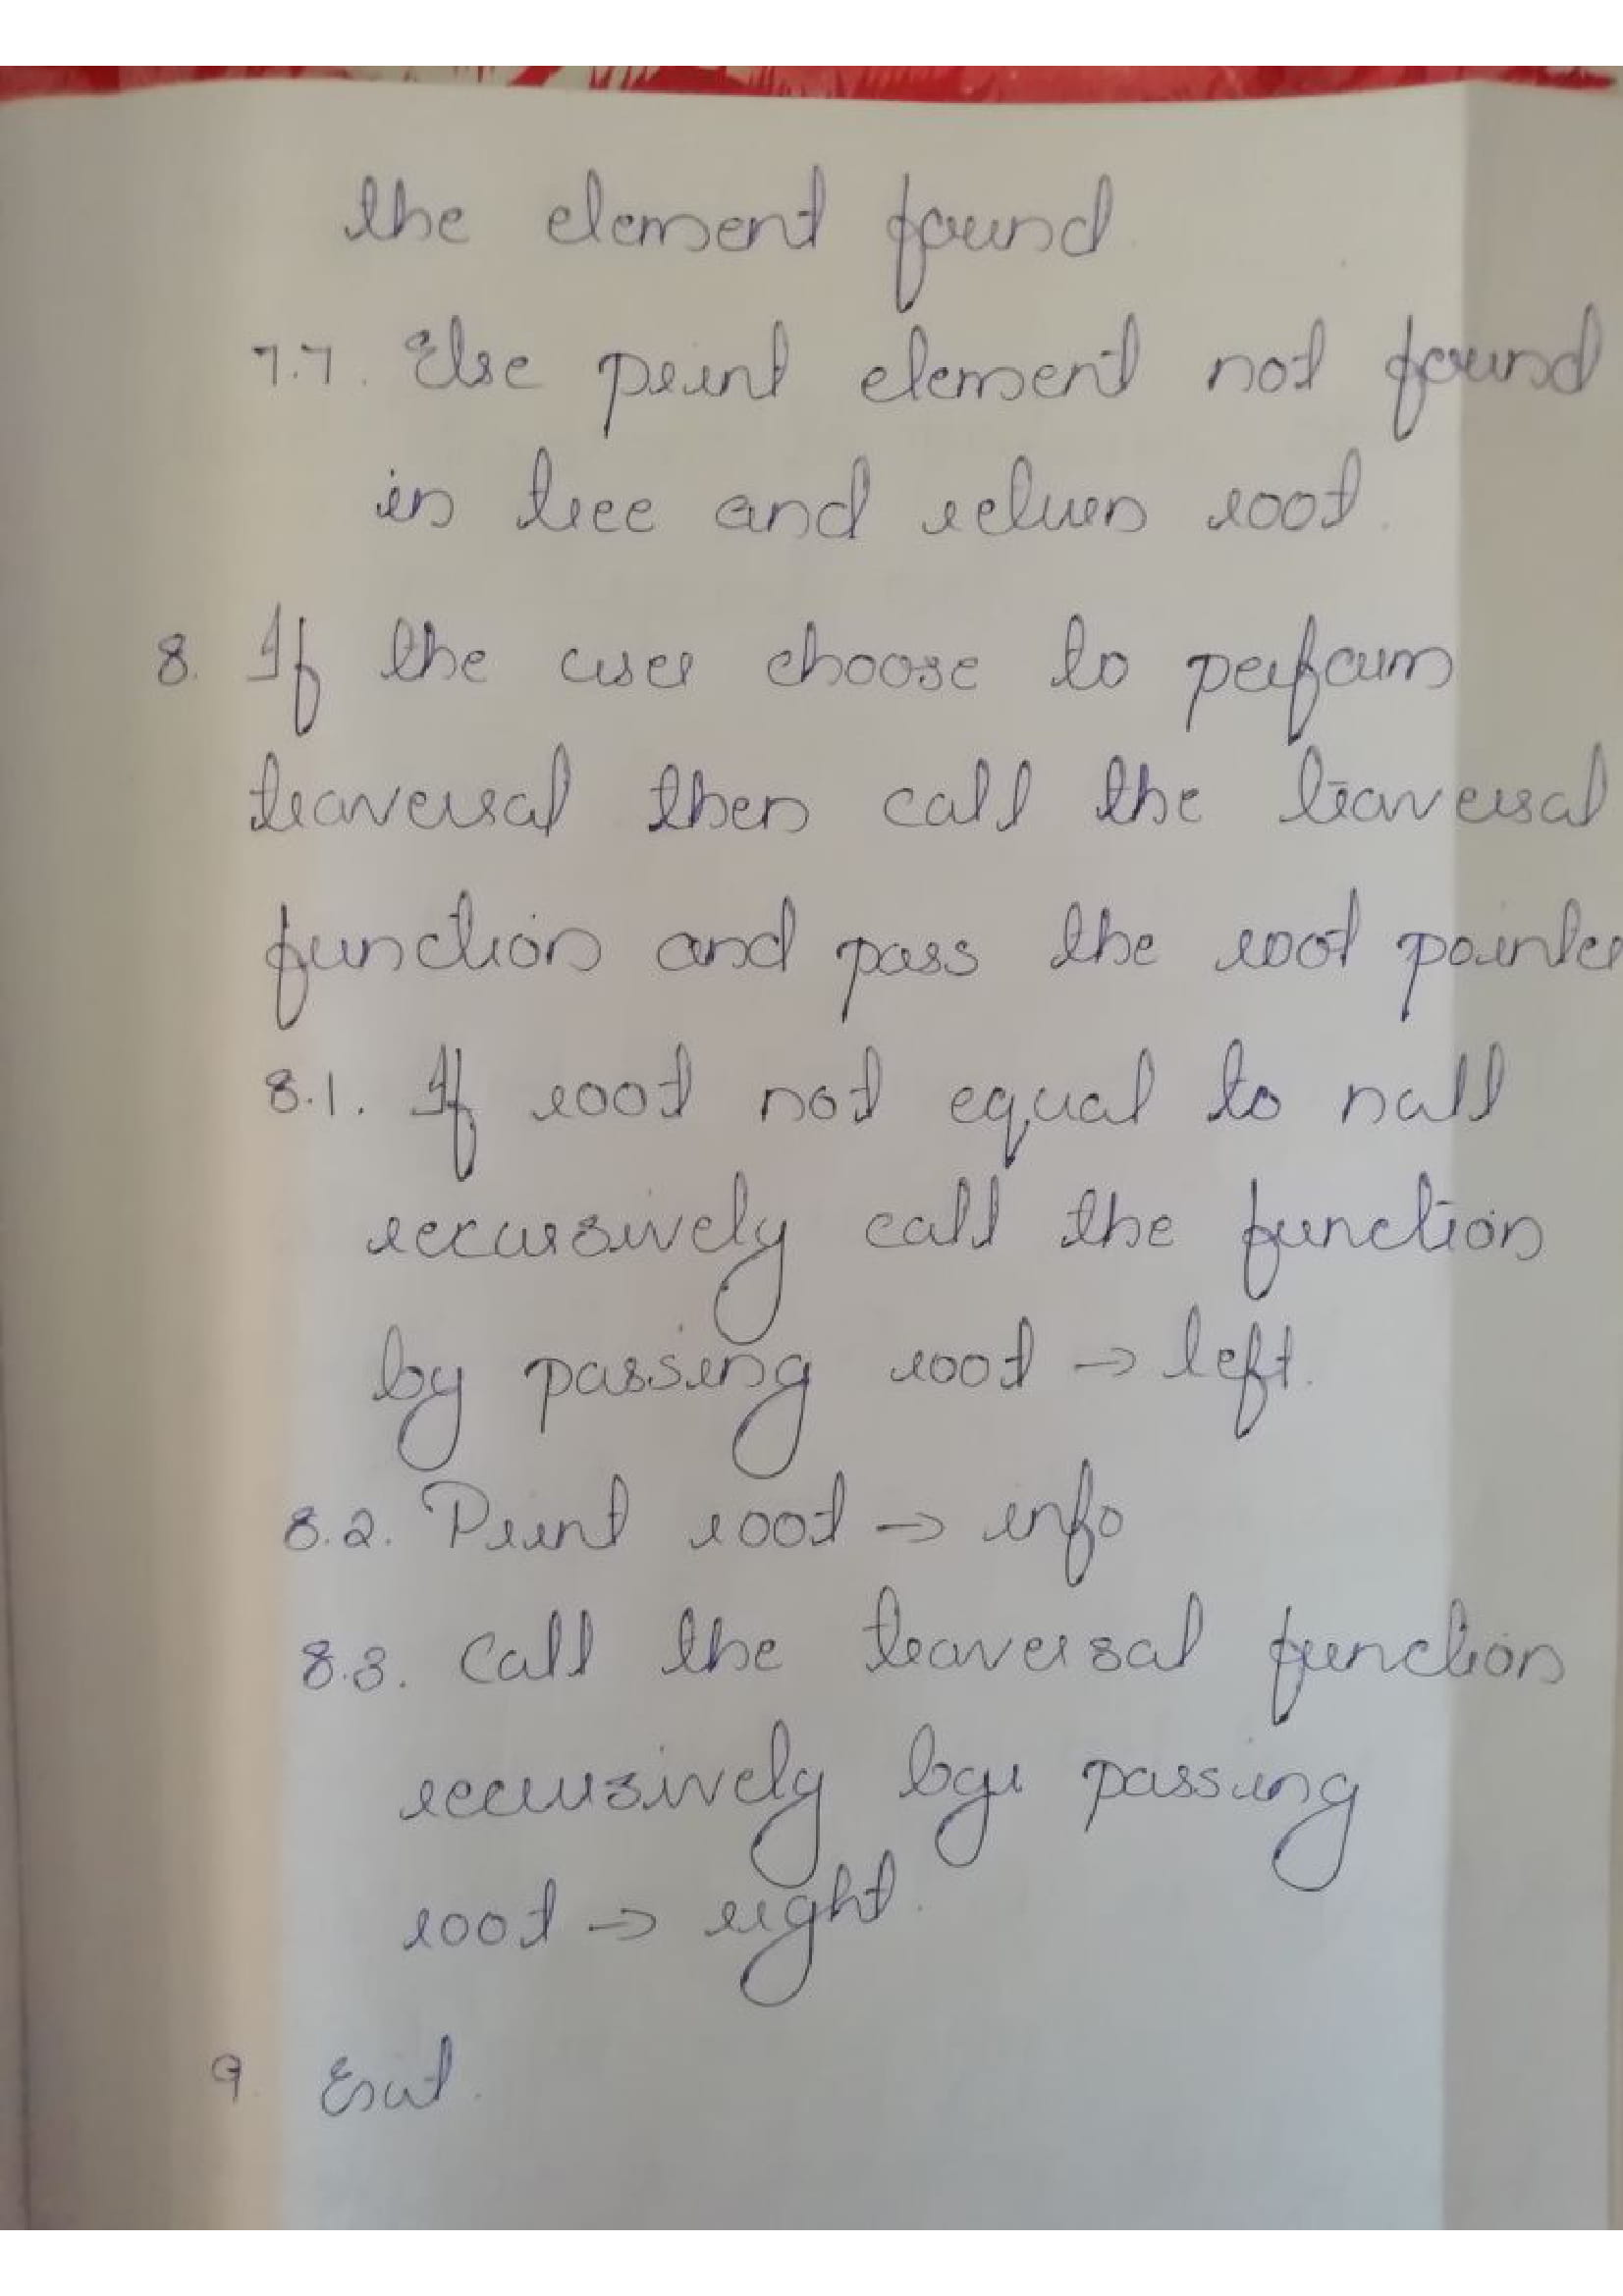 the element found
7.7. Else print element not found
in tree and return root.
8. If the user choose to perform
traversal then call the traversal
function and pass the root pointer
8.1. If root not equal to null
recursively call the function
by passing root → left.
8.2. Print root → info
8.3. Call the traversal function
recursively by passing
root → right.
9. Exit.